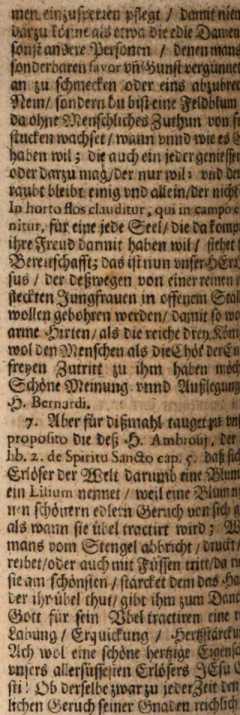 men einzusperren pflegt / damit niem
darzu könne als etwa die edle Damen
sonst andere Personen / denen mans
sonderbaren favor vñ Gunst vergünnet
an zu schmecken oder eins abzubrec
Nein / sondern du bist eine Feldblum
da ohne Menschliches Zuthun von s
stucken wachset / wann vnnd wie es G
haben wil; die auch ein jeder geniessen
oder darzu mag / der nur wil: vnd der
raubt bleibt einig vnd allein / der nicht
In horto flos clauditur, qui in campo c
nitur, für eine jede Seel / die da kompt
ihre Freud darmit haben wil / stehet
Bereitschafft; das ist nun vnser HErr
sus / der deßwegen von einer reinen
steckten Jungfrauen in offenem Stal
wollen gebohren werden / damit so wo
arme Hirten / als die reiche drey Kön
wol den Menschen als die Chör der En
freyen Zutritt zu ihm haben möch
Schöne Meinung vnnd Außlegung
H. Bernardi.
7. Aber für dißmahl tauget zu vns
proposito die deß H. Ambrosij, der
lib. 2. de Spiritu Sancto cap. 5. daß sich
Erlöser der Welt darumb eine Blum
ein Lilium nennet / weil eine Blum n
nen schönern edlern Geruch von sich g
als wann sie übel tractirt wird; W
mans vom Stengel abbricht / druckt /
reibet / oder auch mit Füssen tritt / da r
sie am schönsten / stärcket dem das Ha
der ihr übel thut / gibt ihm zum Danck
Gott für sein Vbel tractiren eine r
Labung / Erquickung / Hertzstärcku
Ach wol eine schöne hertzige Eigensc
vnsers allersüssesten Erlösers JEsu C
sti! Ob derselbe zwar zu jeder Zeit den
lichen Geruch seiner Gnaden reichlich